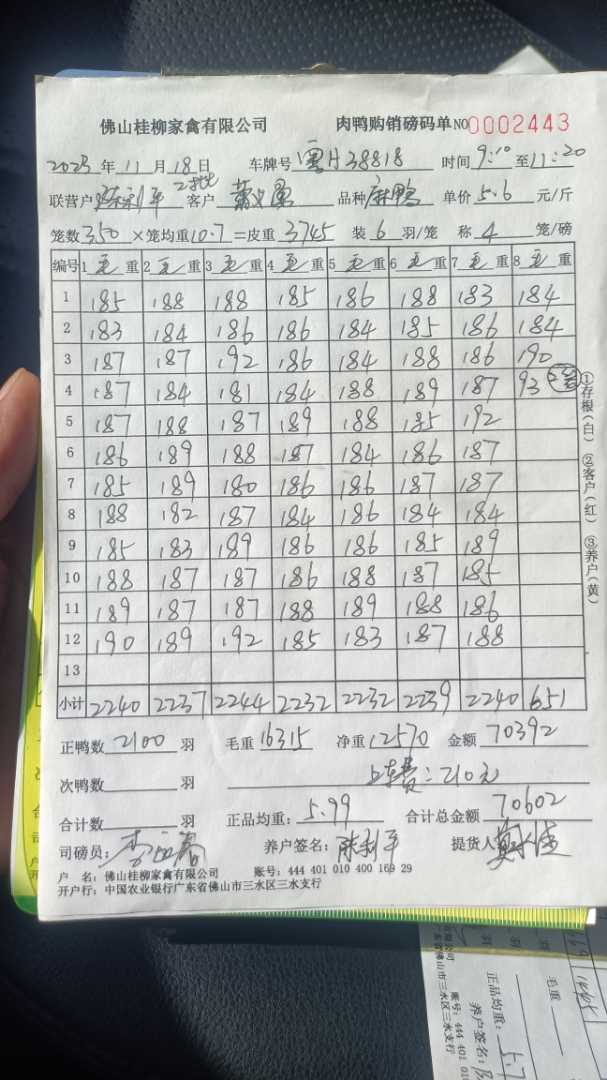 佛山桂柳家禽有限公司 肉鸭购销磅码单 NO 0002443
2023年11月18日 车牌号 粤A38818 时间 9:10 至 11:20
联营户 陈利平 2批 客户 品种 麻鸭 单价 5.6 元/斤
笼数 350 ×笼均重 10.7 =皮重 3745 装 6 羽/笼 称 4 笼/磅
编号 1 毛 重 2 毛 重 3 毛 重 4 毛 重 5 毛 重 6 毛 重 7 毛 重 8 毛 重
1 185 188 188 185 186 188 183 184
2 183 184 186 186 184 185 186 184
3 187 187 192 186 184 188 186 190
4 187 184 181 184 188 189 187 93
5 187 188 187 189 188 185 192
6 186 189 188 187 184 186 187
7 185 189 180 186 186 187 187
8 188 182 187 184 186 184 184
9 185 183 189 186 186 185 189
10 188 187 187 186 188 187 185
11 189 187 187 188 189 188 186
12 190 189 192 185 183 187 188
13
小计 2240 2237 2244 2232 2232 2239 2240 651
①存根(白) ②客户(红) ③养户(黄)
正鸭数 2100 羽 毛重 16315 净重 12570 金额 70392
次鸭数 羽 上车费:210元
合计数 羽 正品均重: 5.99 合计总金额 70602
司磅员: 养户签名: 陈利平 提货人
户 名: 佛山桂柳家禽有限公司 账号: 444 401 010 400 169 29
开户行: 中国农业银行广东省佛山市三水区三水支行
毛重
正品均重: 5.7
养户签名:
账号: 444 401 01
东省佛山市三水区三水支行